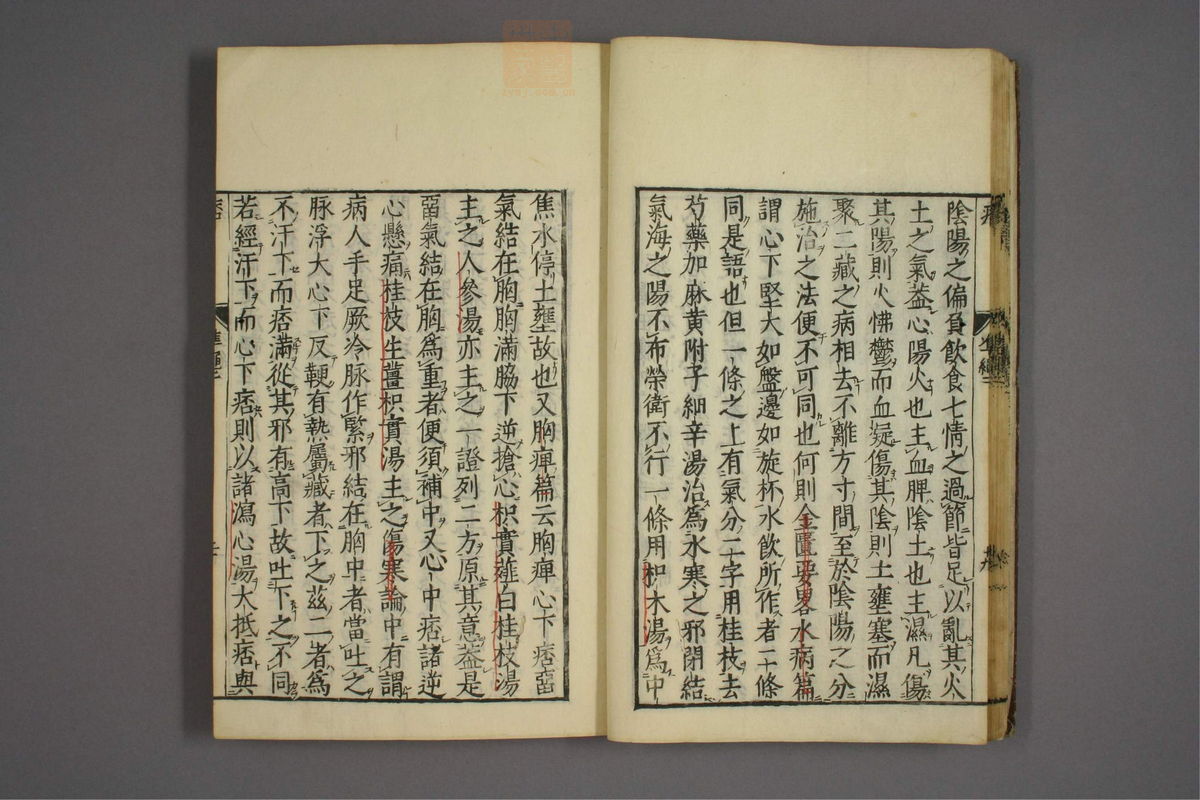 陰陽之偏負飲食七情之過節皆足以亂其火
土之氣葢心陽火也主血脾陰土也主濕凡傷
其陽則火怫鬱而血凝傷其陰則土壅塞而濕
聚二藏之病相去不離方寸間至於陰陽之分
施治之法便不可同也何則金匱要畧水病篇
謂心下堅大如盤邊如旋杯水飲所作者二條
同是語也但一條之上有氣分二字用桂枝去
芍藥加麻黄附子細辛湯治爲水寒之邪閉結
氣海之陽不布榮衛不行一條用枳木湯爲中
焦水停土壅故也又胸痺篇云胸痺心下痞畱
氣結在胸胸滿脇下逆搶心枳實薤白桂枝湯
主之人參湯亦主之一證列二方原其意葢是
畱氣結在胸爲重者便須補中又心中痞諸逆
心懸痛桂枝生薑枳實湯主之傷寒論中有謂
病人手足厥冷脉作緊邪結在胸中者當吐之
脉浮大心下反鞕有熱屬藏者下之茲二者爲
不汗下而痞滿從其邪有高下故吐下之不同
若經汗下而心下痞則以諸瀉心湯大抵痞與